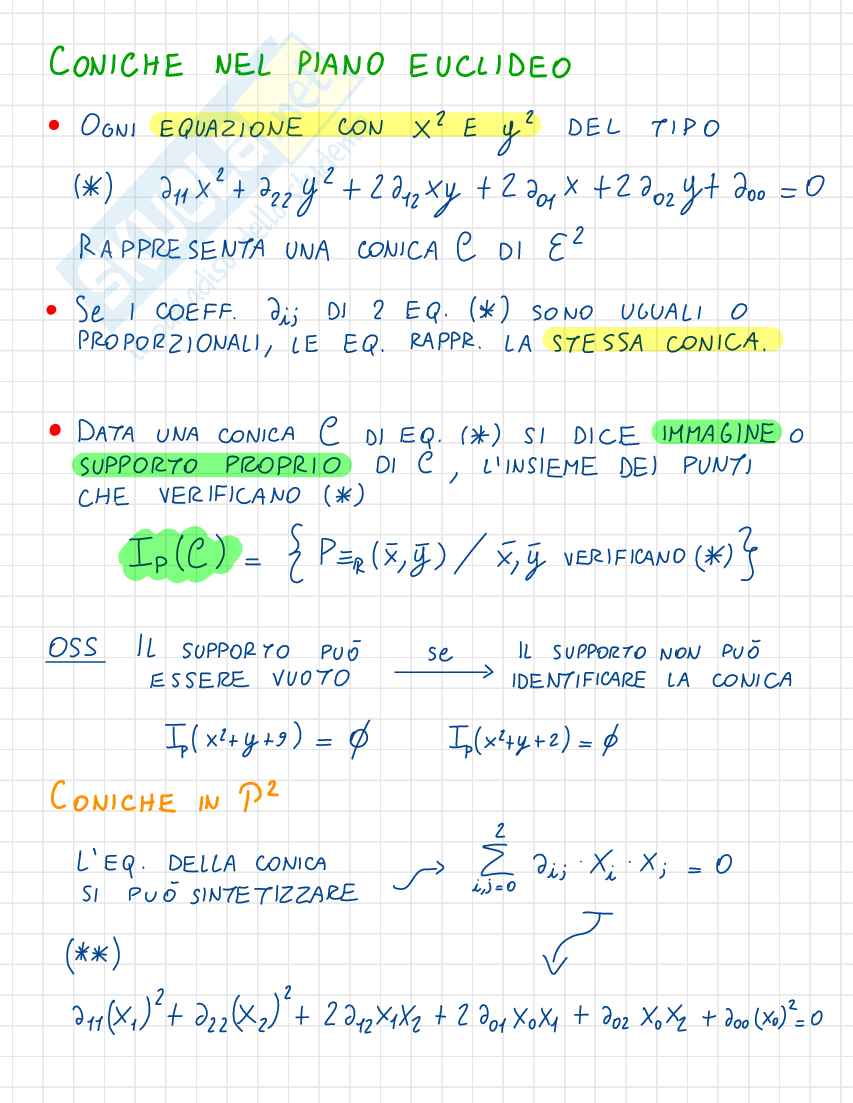 CONICHE NEL PIANO EUCLIDEO
• OGNI EQUAZIONE CON x² E y² DEL TIPO
(*) a₁₁x² + a₂₂y² + 2a₁₂xy + 2a₀₁x + 2a₀₂y + a₀₀ = 0
RAPPRESENTA UNA CONICA C DI E²
• Se I COEFF. aᵢⱼ DI 2 EQ. (*) SONO UGUALI O
PROPORZIONALI, LE EQ. RAPPR. LA STESSA CONICA.
• DATA UNA CONICA C DI EQ. (*) SI DICE IMMAGINE O
SUPPORTO PROPRIO DI C, L'INSIEME DEI PUNTI
CHE VERIFICANO (*)
Iₚ(C) = { P≡ᵣ(x̄, ȳ) / x̄, ȳ VERIFICANO (*) }
OSS IL SUPPORTO PUÒ ESSERE VUOTO se → IL SUPPORTO NON PUÒ IDENTIFICARE LA CONICA
Iₚ(x²+y+9) = ∅ Iₚ(x²+y+2) = ∅
CONICHE IN P²
L'EQ. DELLA CONICA
SI PUÒ SINTETIZZARE → ∑²ᵢ,ⱼ₌₀ aᵢⱼ · Xᵢ · Xⱼ = 0
(**)
a₁₁(X₁)² + a₂₂(X₂)² + 2a₁₂X₁X₂ + 2a₀₁X₀X₁ + a₀₂X₀X₂ + a₀₀(X₀)² = 0